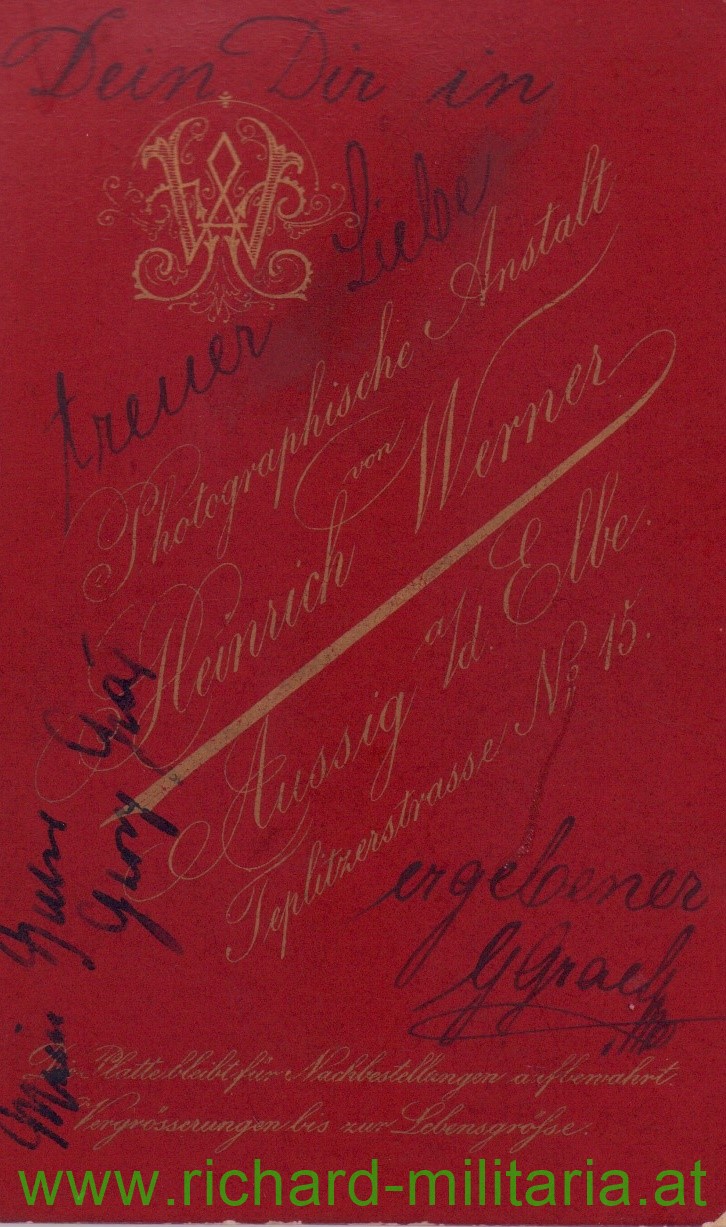 Dein Dir in
treuer Liebe
Photographische Anstalt
von
Heinrich Werner
Aussig a/d. Elbe.
Teplitzerstrasse No 15.
ergebener
Die Platte bleibt für Nachbestellungen aufbewahrt.
Vergrösserungen bis zur Lebensgröße.
www.richard-militaria.at